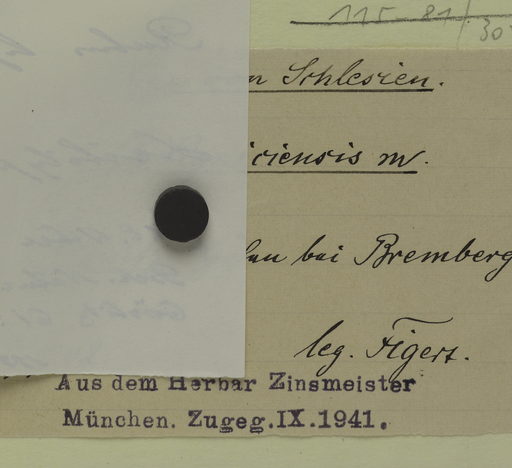 115-81/30
n Schlesien.
iciensis m.
au bei Bremberg
leg. Figert.
Aus dem Herbar Zinsmeister
München. Zugeg.IX.1941.